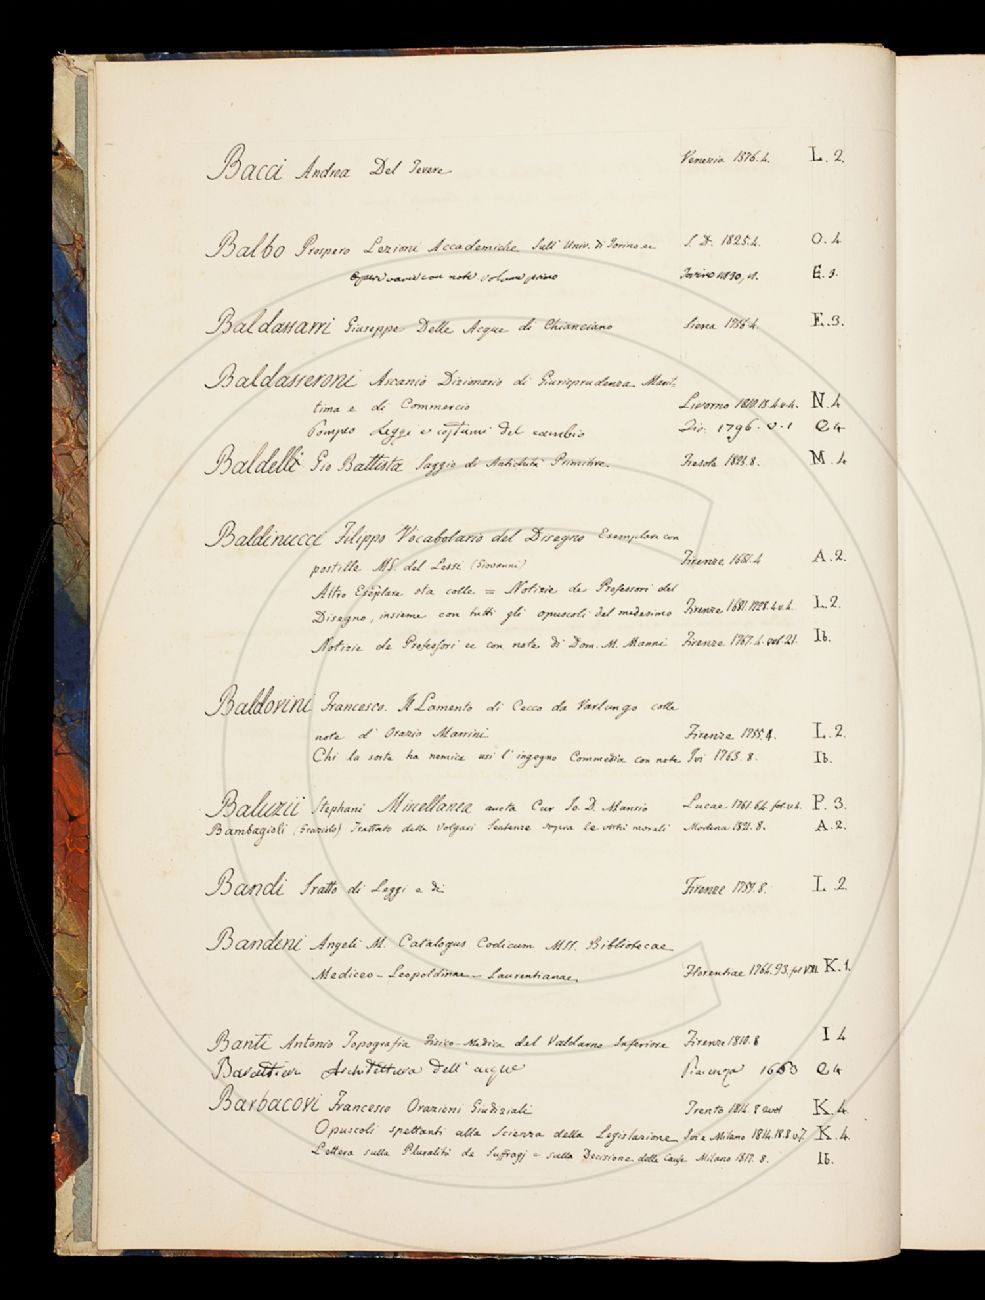 Bacci Andrea Del Tevere Venezia 1576.4. L. 2.
Balbo Prospero Lezioni Accademiche Sull' Univ. di Torino ec S. D. 1825.4. O. 4
Opere varie con note volume primo Torino 1830, E. 3.
Baldassarri Giuseppe Delle Acque di Chianciano Siena 1756.4. E. 3.
Baldasseroni Ascanio Dizionario di Giurisprudenza Marit=
tima e di Commercio Livorno 4. N. 4
Pompeo Leggi e costumi del cambio 1796. C 4
Baldelli Gio Battista Saggio di Antichità Primitive. Fiesole 8. M. 4
Baldinucci Filippo Vocabolario del Disegno Esemplare con
postille MS. del Lessi (Giovanni) Firenze 1681.4 A. 2.
Altro Esemplare sta colle = Notizie de Professori del
Disegno, insieme con tutti gli opuscoli del medesimo Firenze 1681.1728. L. 2.
Notizie de Professori ec con note di Dom. M. Manni Firenze 1767.4. vol 21. Ib.
Baldovini Francesco. Il Lamento di Cecco da Varlungo colle
note d' Orazio Marrini Firenze 1755.4. L. 2.
Chi la sorte ha nemica usi l' ingegno Commedia con note Ivi 1763. 8. Ib.
Baluzii Stephani Miscellanea aucta Cur Jo. D. Mansio Lucae 1761.64. fol. v.4. P. 3.
Bambagioli (Graziolo) Trattato delle Volgari Sentenze sopra le virtù morali Modena 1821. 8. A. 2.
Bandi Tratto di Leggi e di Firenze 8. L. 2
Bandini Angeli M. Catalogus Codicum MSS. Bibliotecae
Mediceo - Leopoldinae - Laurentianae, Florentiae 1764.93. fol K. 1.
Banti Antonio Topografia Fisico-Medica del Valdarno Inferiore Firenze 8 I 4
Barattieri Architettura dell' acque Piacenza 1663 C 4
Barbacovi Francesco Orazioni Giudiziali Trento 1814. 8 K. 4.
Opuscoli spettanti alla Scienza della Legislazione Ivi e Milano 1814.18.8. v.7. K. 4.
Lettera sulla Pluralità de Suffragj e sulla Decisione delle Cause Milano 8. Ib.